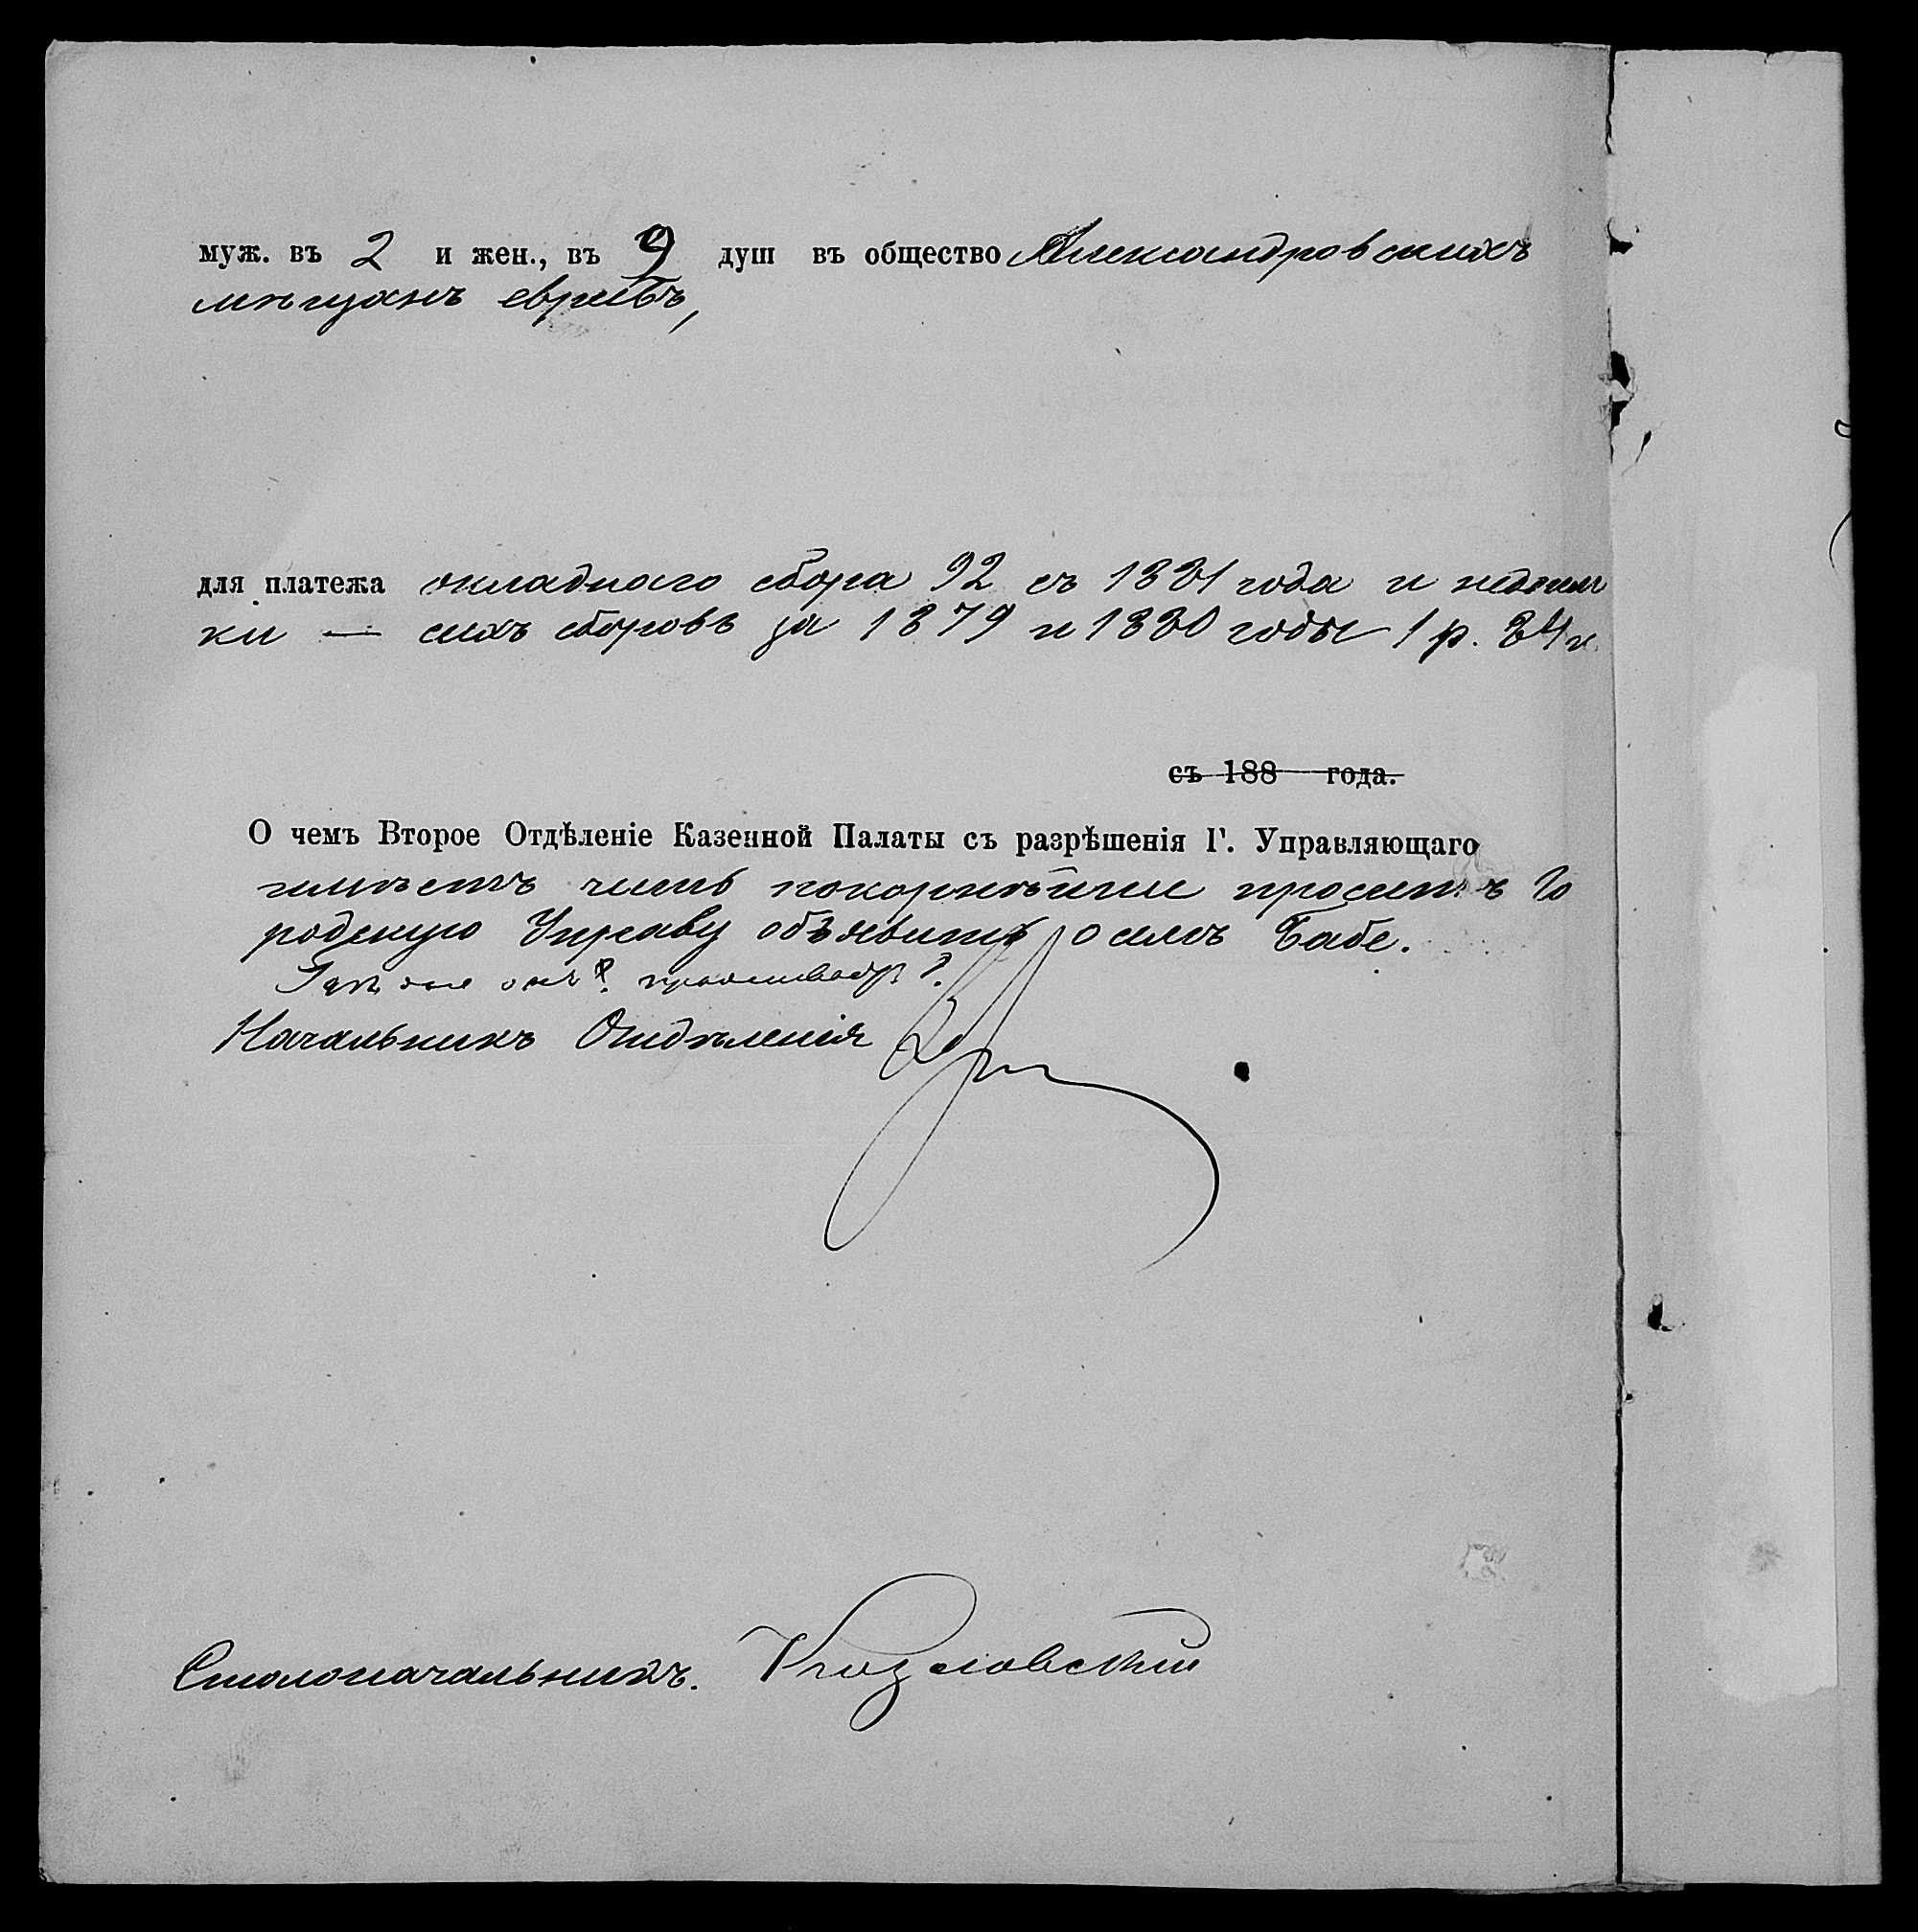 муж. въ 2 и жен., въ 9 душ въ общество Александровскихъ
мѣщанъ евреевъ,
для платежа окладнаго сбора 92 съ 1881 года и недоим
ки — сихъ сборовъ за 1879 и 1880 годы 1 р. 84 к.
съ 188 года.
О чемъ Второе Отдѣленіе Казенной Палаты съ разрѣшенія Г. Управляющаго
имѣетъ честь покорнѣйше просить Го
родскую Управу объявить о семъ Бабе.
Гдѣ же онъ? проживаетъ?
Начальникъ Отдѣленія
Столоначальникъ. Козловскій